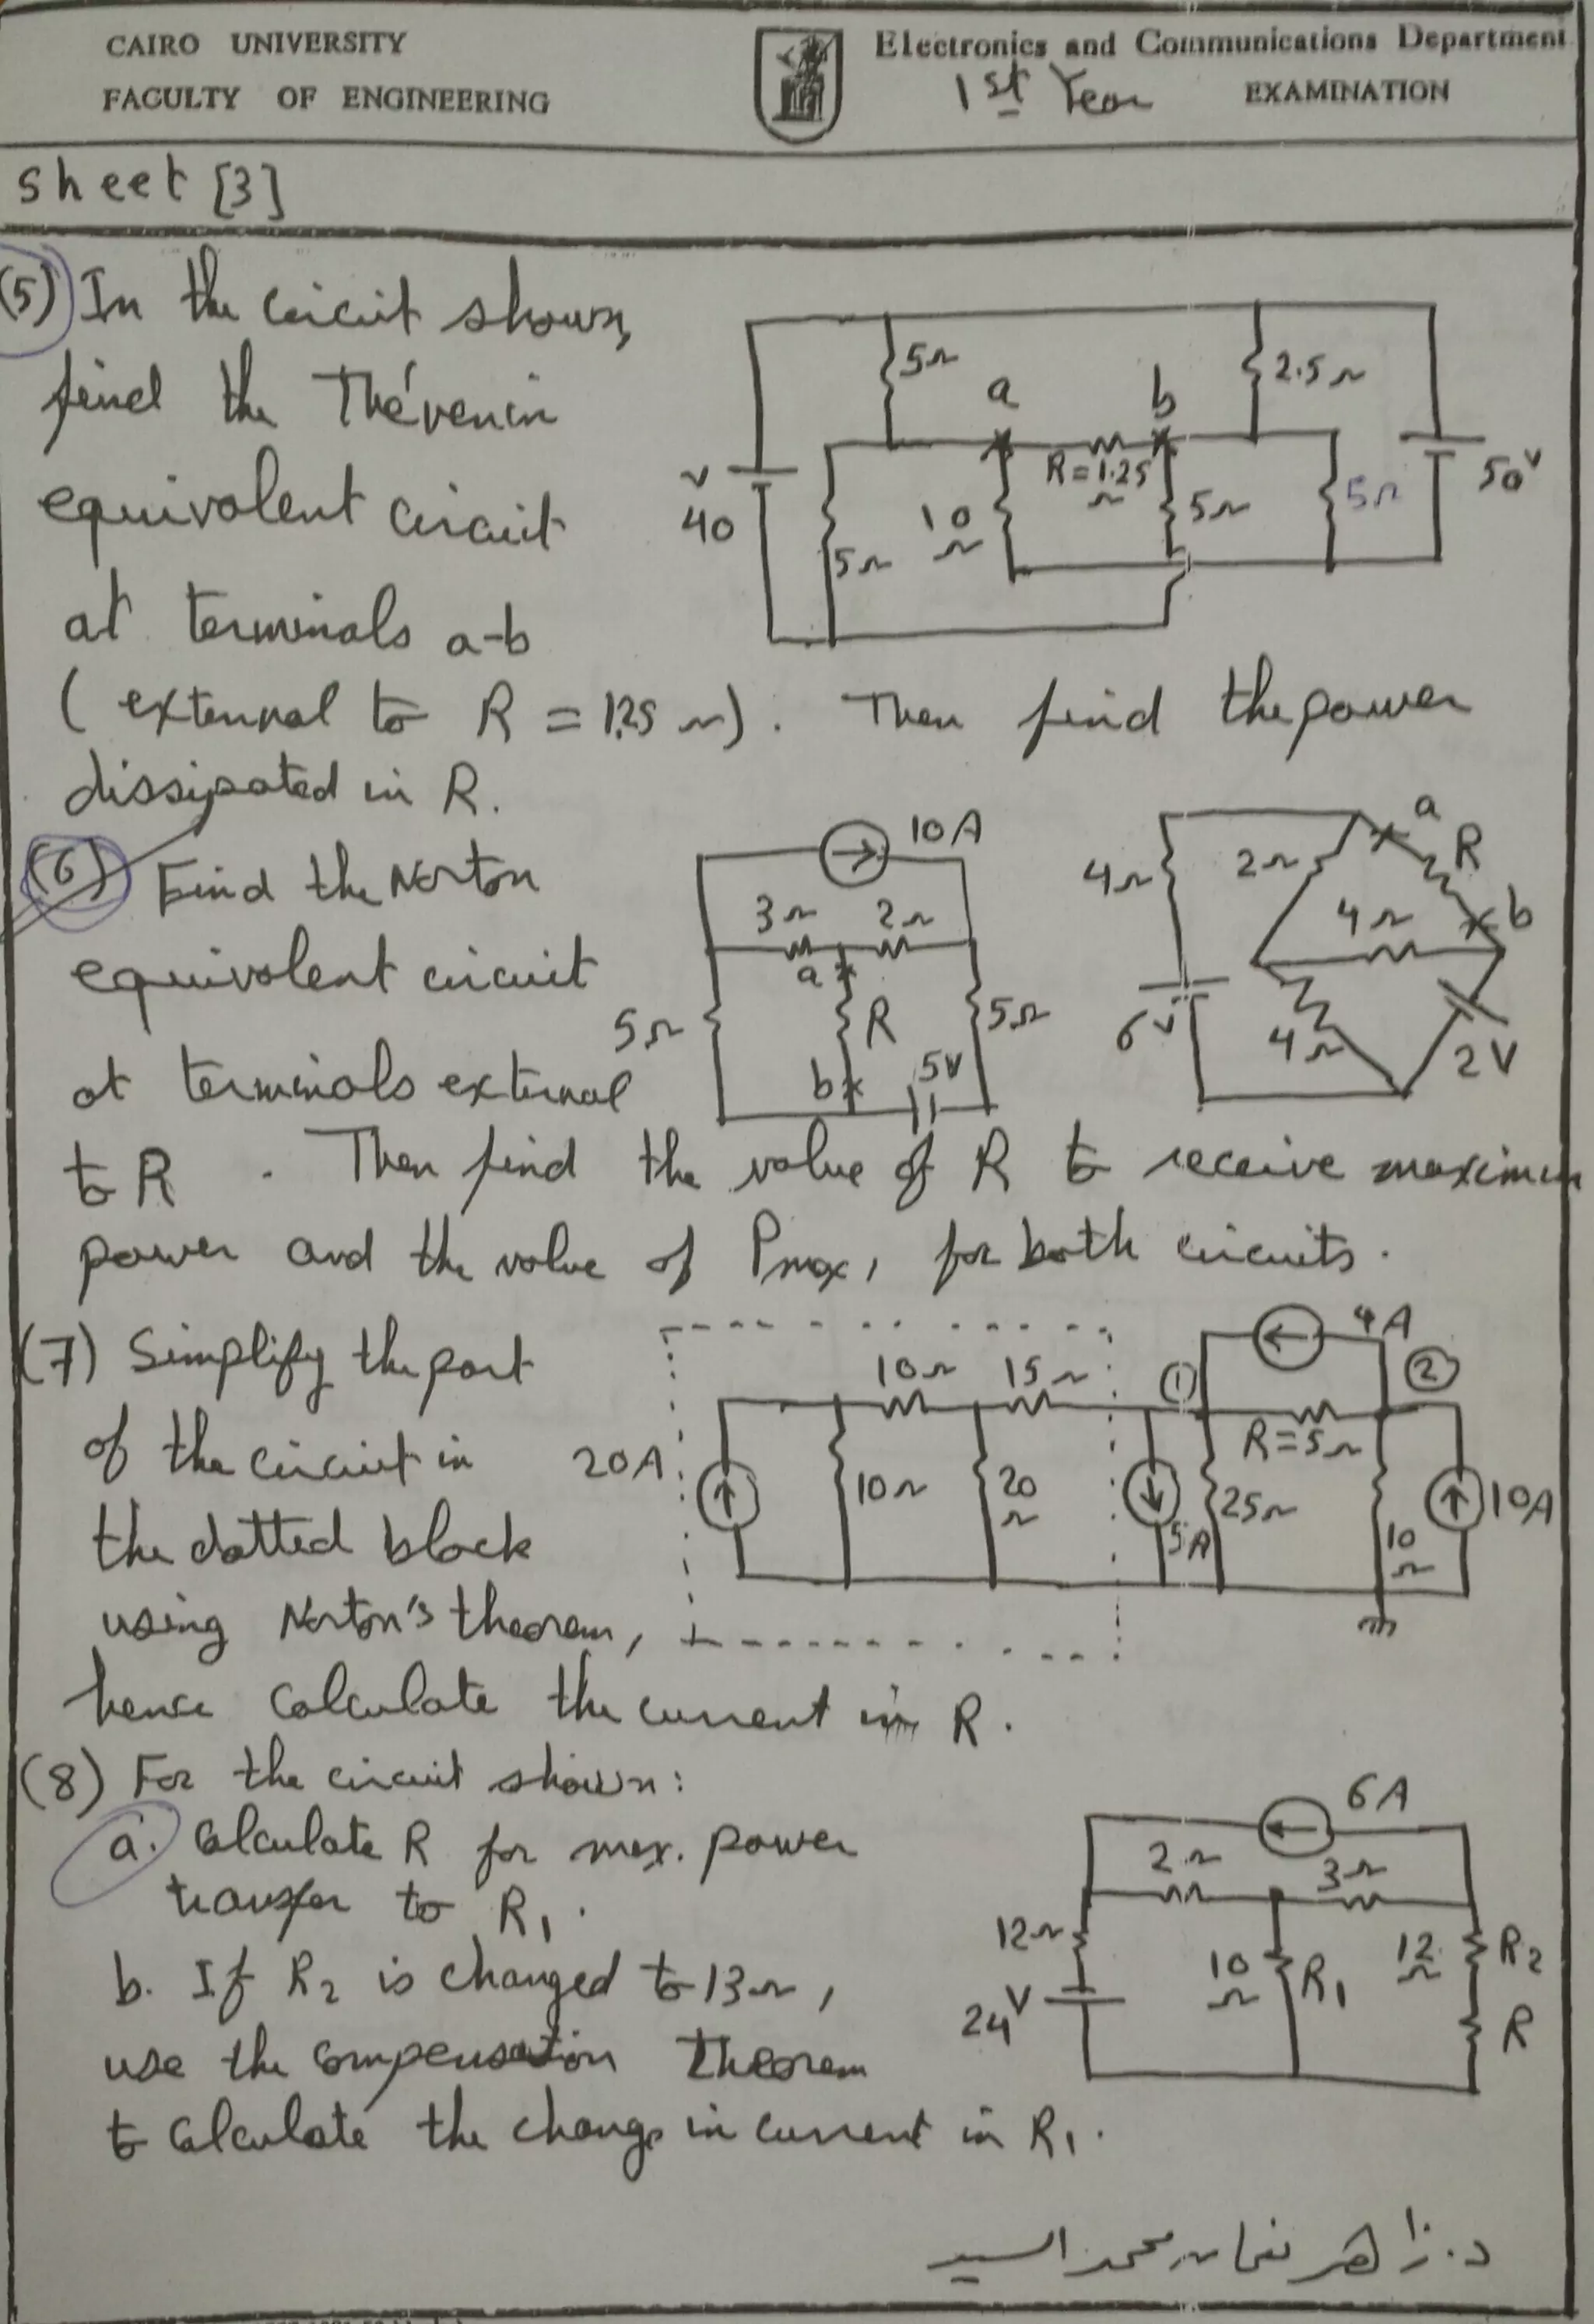 CAIRO UNIVERSITY
FACULTY OF ENGINEERING
Electronics and Communications Department
1st Year EXAMINATION
Sheet [3]
(5) In the circuit shown,
find the Thévenin
equivalent circuit
at terminals a-b
(external to R = 1.25 Ω). Then find the power
dissipated in R.
5Ω
2.5Ω
a
b
R=1.25
Ω
v
40
5Ω
10
Ω
5Ω
5Ω
50v
(6) Find the Norton
equivalent circuit
at terminals external
to R. Then find the value of R to receive maximum
power and the value of Pmax, for both circuits.
10A
3Ω
2Ω
a
5Ω
R
5Ω
b
5v
a
4Ω
2Ω
R
4Ω
b
6v
4Ω
2V
(7) Simplify the part
of the circuit in
the dotted block
using Norton's theorem,
hence calculate the current in R.
4A
10Ω
15Ω
①
②
20A
R=5Ω
10Ω
20
Ω
5A
25Ω
10
Ω
10A
(8) For the circuit shown:
a. Calculate R for max. power
transfer to R1.
b. If R2 is changed to 13Ω,
use the compensation theorem
to calculate the change in current in R1.
6A
2Ω
3Ω
12Ω
10
Ω
R1
12
Ω
R2
24V
R
د. زاهر محمد السيد